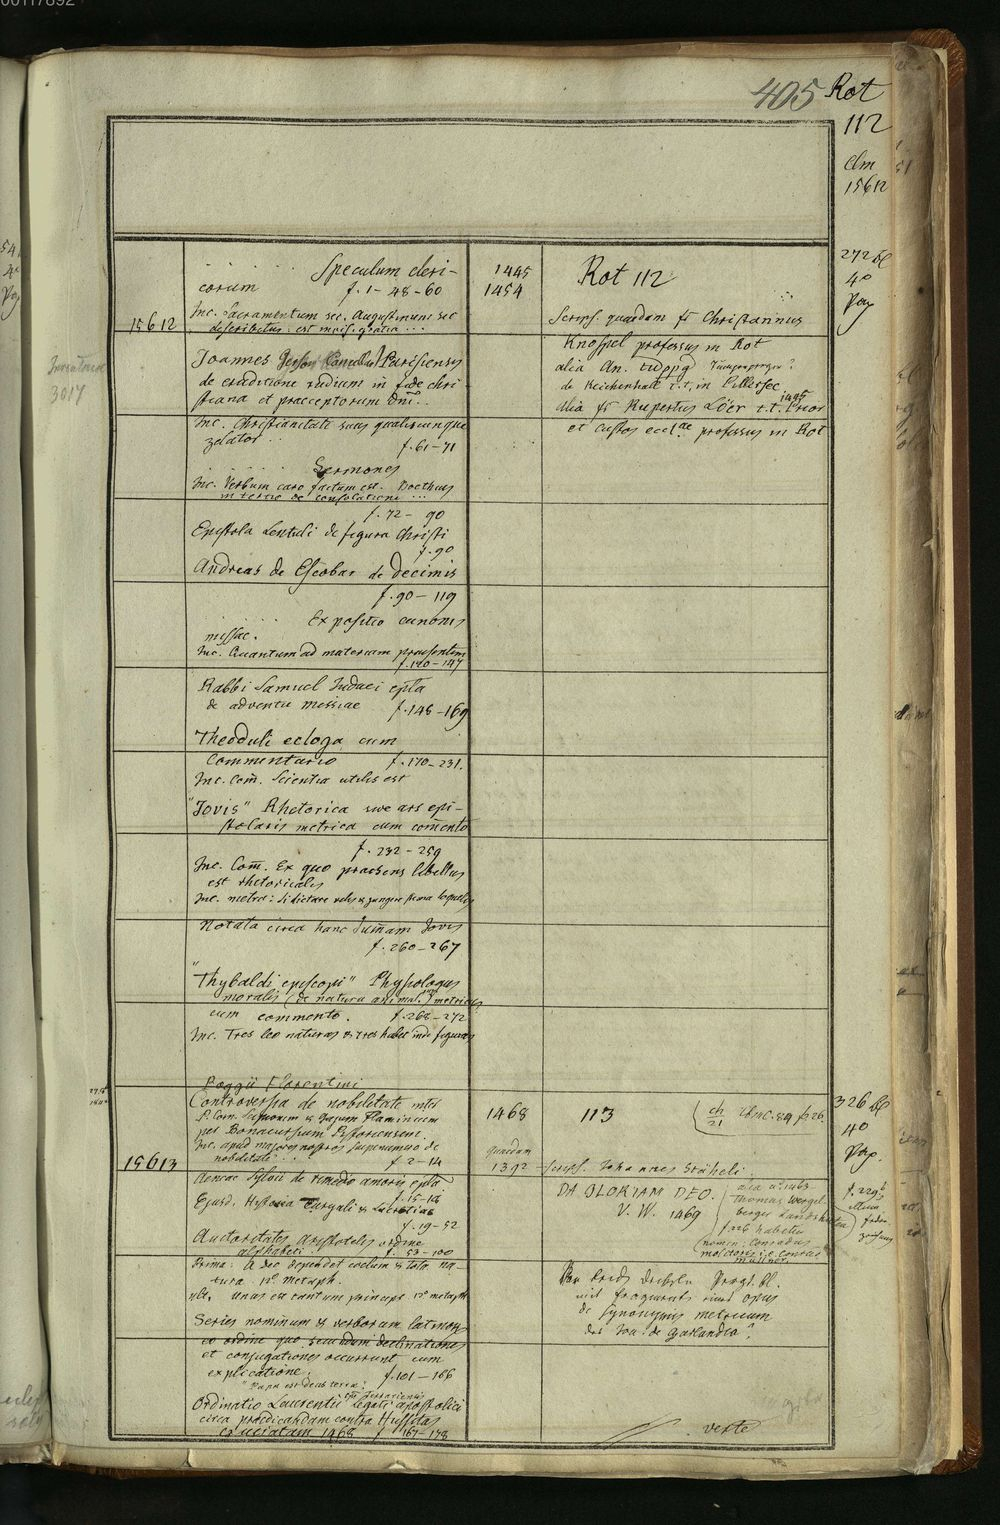 405 Rot
112
Clm
15612
Speculum cleri-
corum f. 1-48-60
Inc. Sacramentum sec. Augustinum sic
describitur: est
15612
1445
1454
Rot 112
272 Bl
4°
Pap
Scrips. quaedam fr Christannus
Knossel professus in Rot
alia An. tuppg
de Reichenhall t.t. in Pillersee
1445
alia fr Rupertus Löer t.t. Prior
et Custos eccl. professus in Rot
Joannes Gerson Cancellar. Parisiensis
de eruditione rudium in fide chri-
stiana et praeceptorum Dni..
Inc. Christianitati suus qualiscunque
zelator..
f. 61-71
Sermones
Inc. Verbum caro factum est. Boethius
in tertio de consolatione ...
f. 72-90
Epistola Lentuli de figura Christi
f. 90
Andreas de Escobar de decimis
f. 90-119
Expositio canonis
missae.
Inc. Quantum ad materiam praesentem
f. 120-147
Rabbi Samuel Judaei epla
de adventu Messiae f. 148-169
Theoduli ecloga cum
Commentario f. 170-231.
Inc. Com. Scientia utilis est
"Jovis" Rhetorica sive ars epi-
stolaris metrica cum commento
f. 232-259
Inc. Com. Ex quo praesens libellus
est rhetoricalis
Inc. metra: Si dictare velis & jungere
Notata circa hanc Summam Jovis
f. 260-267
"Thybaldi episcopi" Physologus
moralis (de natura animal.) metricus
cum commento. f. 268-272
Inc. Tres leo naturas & tres habet inde figuras
Poggii Florentini
Controversia de nobilitate inter
P. Corn. Scipionem & Gajum Flaminium
per Bonacursum Pistoriensem.
Inc. apud majores nostros saepenumero de
nobilitate... f. 2-14
15613
1468
quaedam
1392
113
326 Bl
4°
Pap.
scrips. Johannes Stäheli
DA GLORIAM DEO.
V. W. 1469
alia a° 1463
Thomas Wergel-
berger Landshut
nomen: Conradus
molitoris i.e. Conrad
Müller.
Aeneae Sylvii de remedio amoris epla
f. 15-18
Ejusd. Historia Euryali & Lucretiae
f. 19-52
Auctoritates Aristotelis ordine
alphabeti. f. 53-100
Prima: A deo dependet coelum & tota na-
tura. 12° metaph.
ult. Unus est tantum princeps 12° metaph
Series nominum & verborum latinorum
eo ordine quo secundum declinationes
et conjugationes occurrunt cum
explicatione. f. 101-166
"Papa est deus terrae"
Ordinatio Laurentii epi Ferrariensis legati apostolici
circa praedicandam contra Hussitas
cruciatam 1468 f. 167-178
opus
de synonymis metricum
des Joh. de Garlandia?
verte